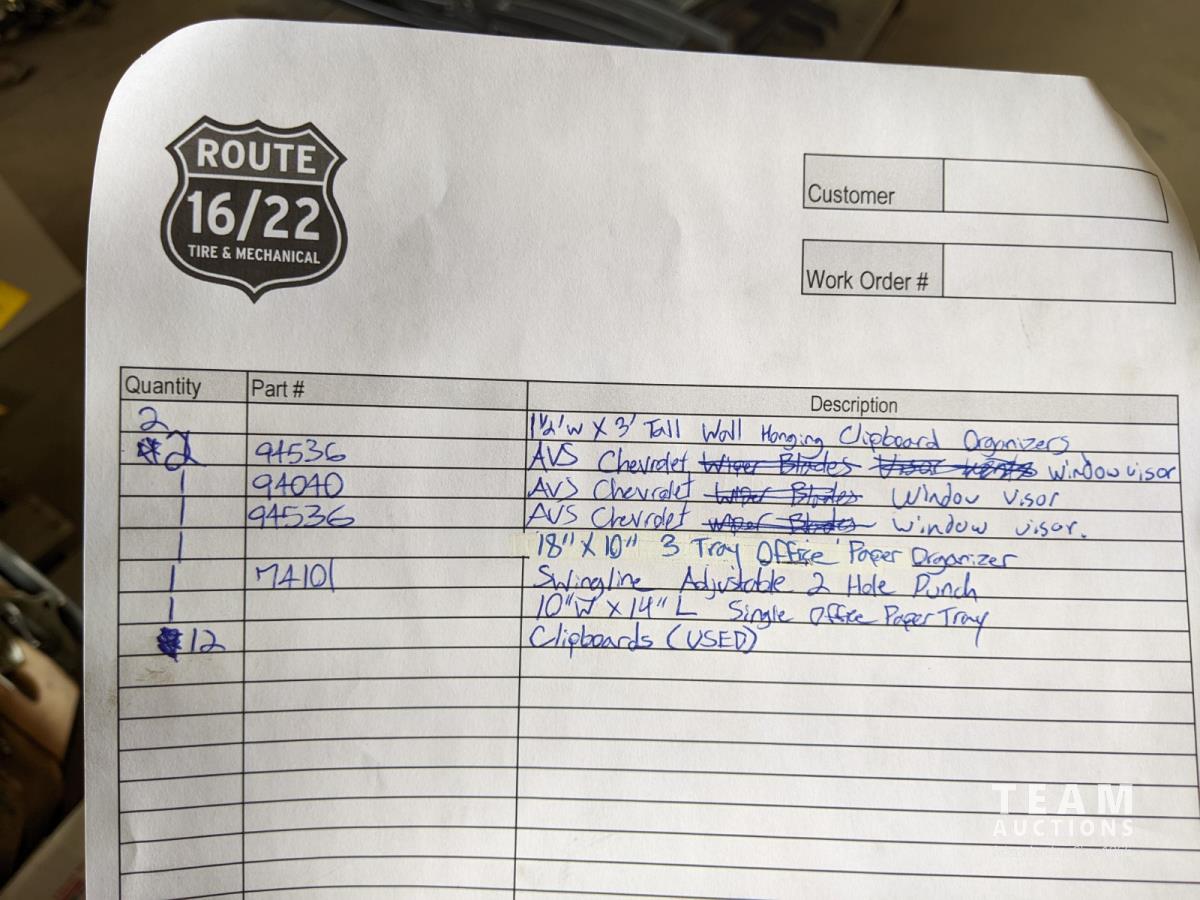 ROUTE
16/22
TIRE & MECHANICAL
Customer
Work Order #
Quantity Part # Description
2 1½'w X 3' Tall Wall Hanging Clipboard Organizers
2 94536 AVS Chevrolet Wiper Blades Visor vents window visor
1 94040 AVS Chevrolet Wiper Blades Window visor
1 94536 AVS Chevrolet Wiper Blades window visor.
1 18" X 10" 3 Tray Office Paper Organizer
1 74101 Swingline Adjustable 2 Hole Punch
1 10"W X 14" L Single Office Paper Tray
12 Clipboards (USED)
TEAM
AUCTIONS